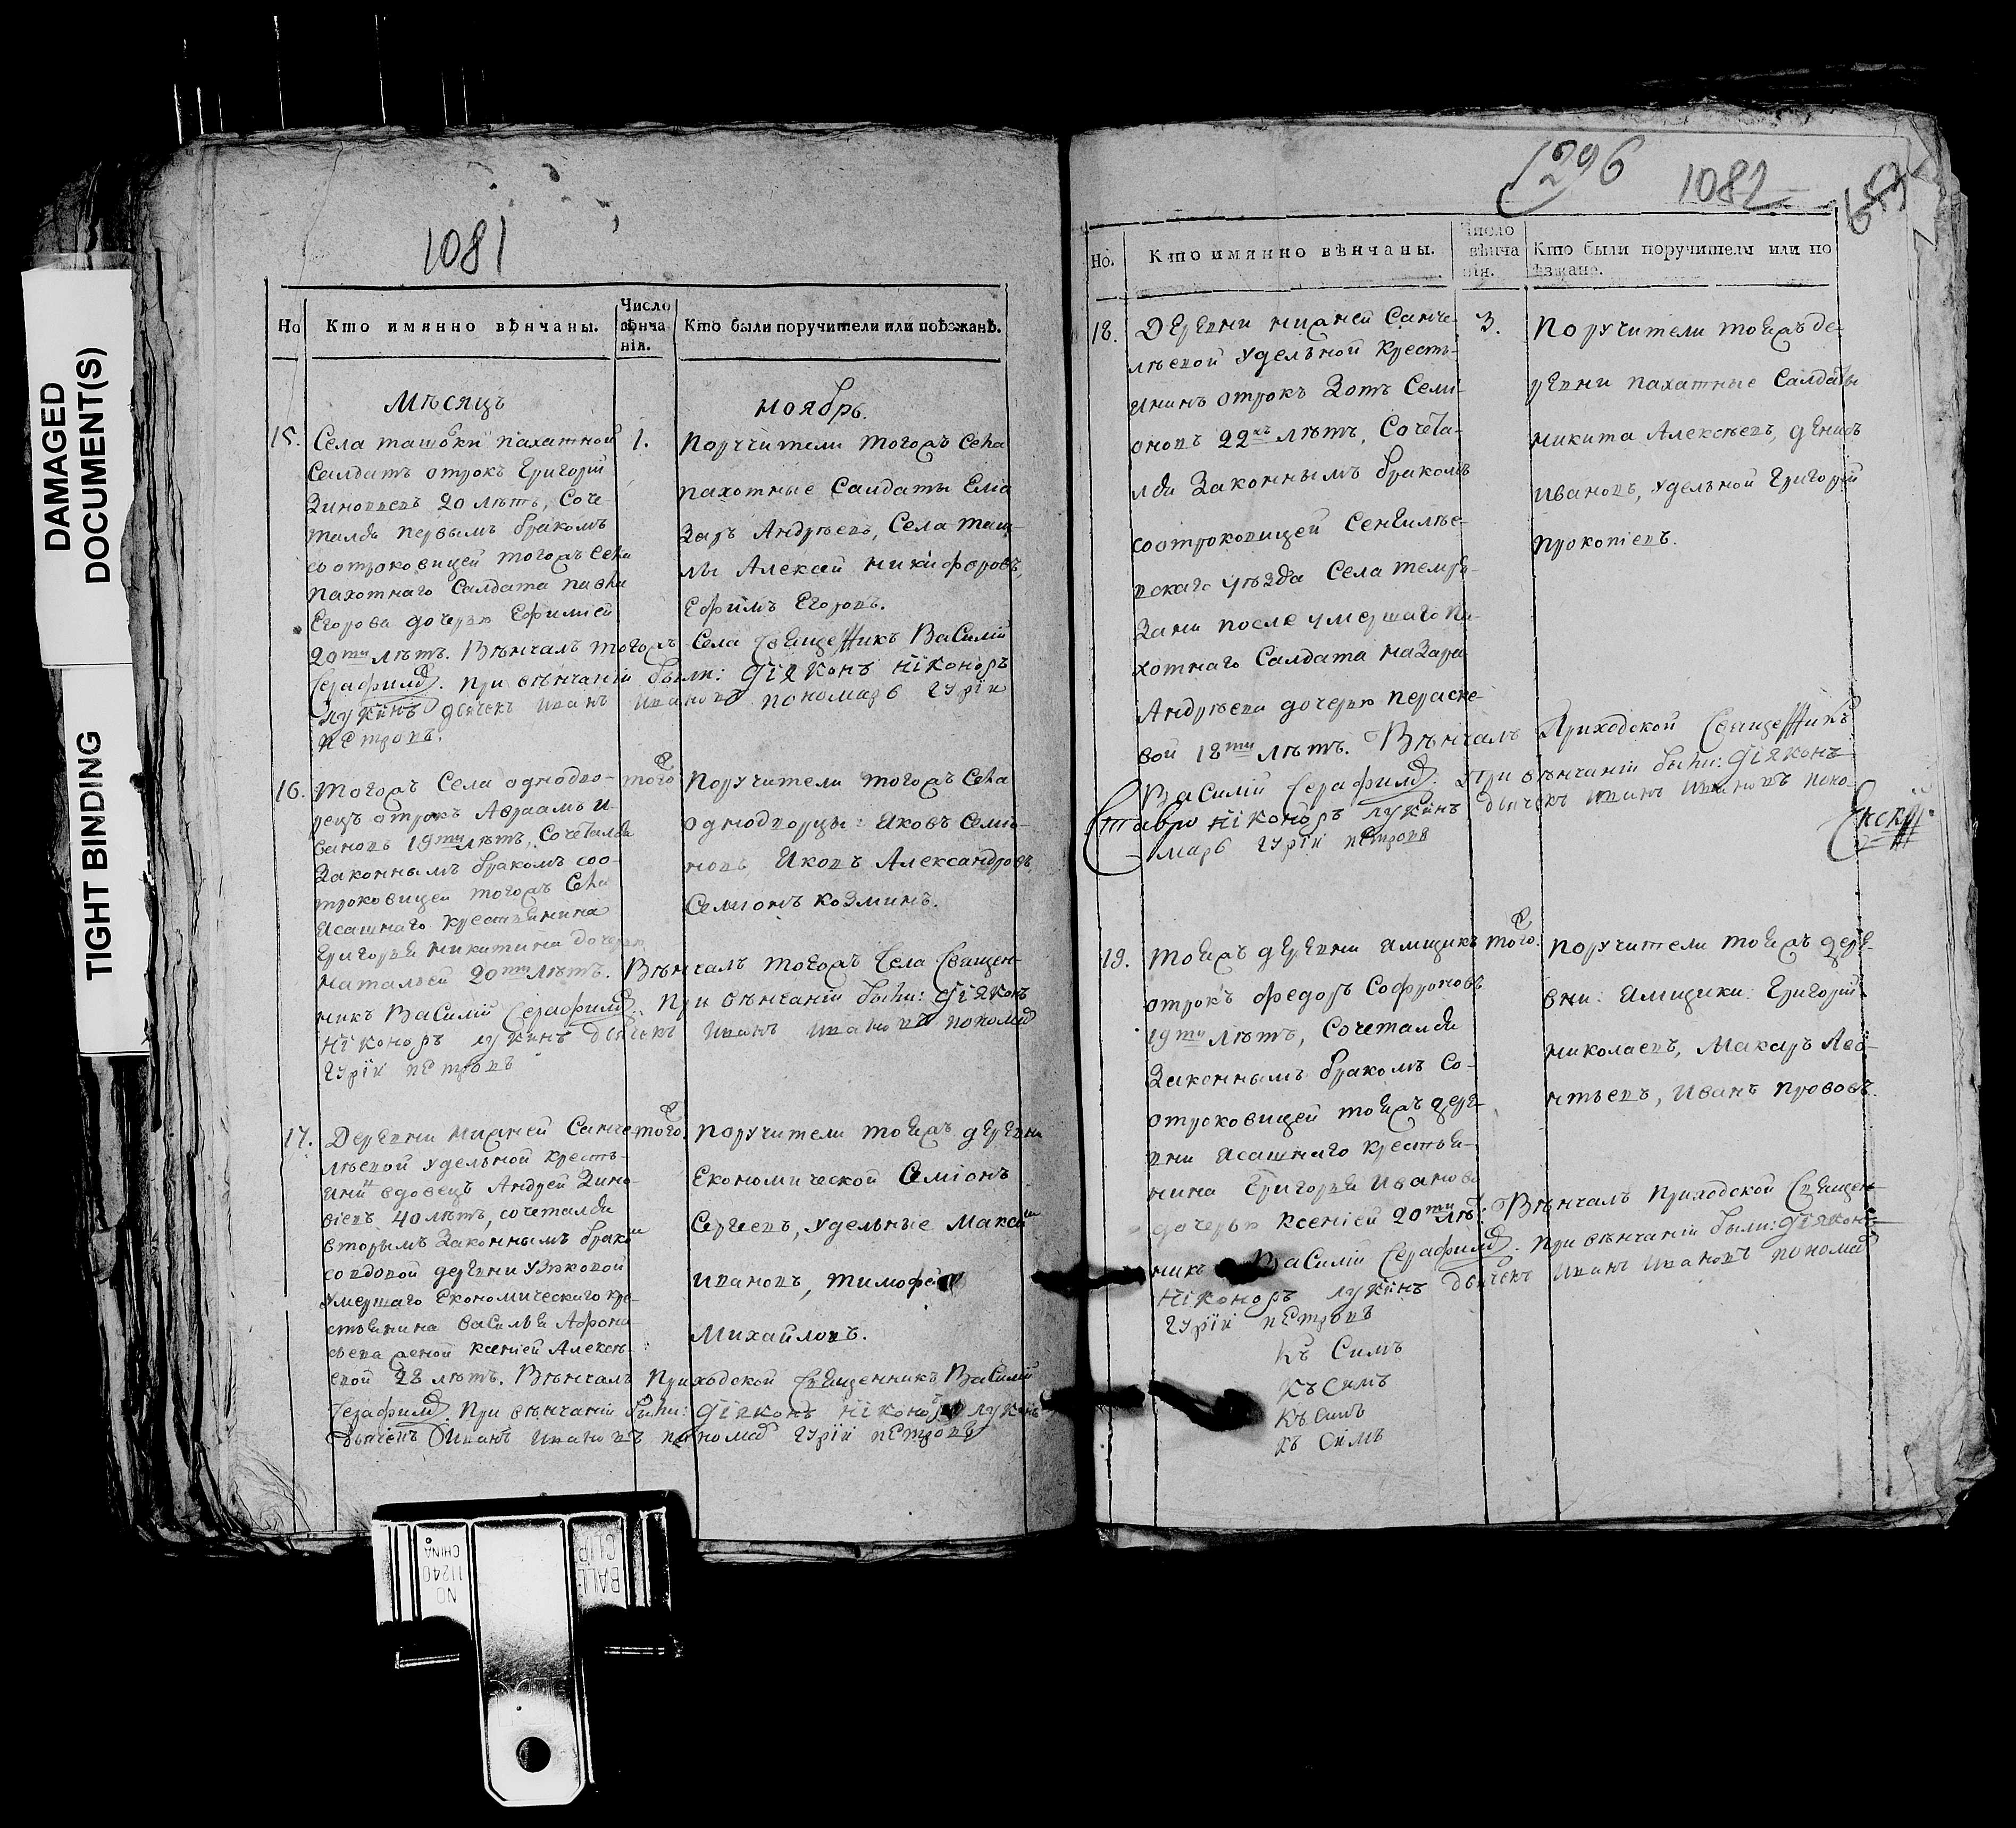 DAMAGED
DOCUMENT(S)
TIGHT BINDING
1081
Но
Кто имянно вѣнчаны.
Число
вѣнча
нія.
Кто были поручители или поѣзжанѣ.
Мѣсяцъ
Ноябрь.
15.
Села ташолки пахатной
Салдатъ отрокъ Григорій
Зиновьевъ 20 лѣтъ, Соче-
тался первымъ бракомъ
со отроковицей тогожъ села
пахотнаго Салдата павла
Егорова дочерью Ефиміей
20ти лѣтъ. Вѣнчалъ тогожъ Села Священникъ Василій
Серафимов. При вѣнчаніи были: Діяконъ Ніконоръ
Лукинъ дьячекъ Иванъ Ивановъ пономарь Гурій
петровъ.
1.
Поручители тогожъ Села
пахотные Салдаты Елиа
заръ Андрѣевъ, Села таш-
лы Алексѣй Никифоровъ,
Ефимъ Егоровъ.
16.
Тогожъ Села однодво-
рецъ отрокъ Авраамъ И-
вановъ 19ти лѣтъ, Сочетался
Законнымъ бракомъ соо-
троковицей тогожъ Села
Ясашнаго крестьянина
Григорья никитина дочерью
Натальей 20ти лѣтъ. Вѣнчалъ тогожъ Села Священ-
никъ Василій Серафимов. При вѣнчаніи были: Діяконъ
Ніконоръ Лукинъ дьячекъ Иванъ Ивановъ пономар
Гурій петровъ
того
Поручители тогожъ Села
однодворцы: Яковъ Семіо-
новъ Яковъ Александровъ
Семіонъ козминъ.
17.
Деревни нижней Санче-
лѣевой удельной кресть-
янин вдовецъ Андрей Зино-
віевъ 40 лѣтъ, сочетался
вторымъ Законнымъ браком
со вдовой деревни узюковой
умершаго Економическаго кре-
стьянина василья Афона
сьева женой ксеніей Алексѣ-
евой 28 лѣтъ. Вѣнчалъ Приходской Священникъ Василій
Серафимов. При вѣнчаніи были: Діяконъ Ніконоръ Лукинъ
дьячекъ Иванъ Ивановъ пономар Гурій петровъ
того
Поручители тоежъ деревни
Економической Семіонъ
Сергеевъ, удельные Максим
Ивановъ, тимофей
Михайловъ.
1296
1082
Но.
Кто имянно вѣнчаны.
Число
вѣнча
нія.
Кто были поручители или по
ѣзжанѣ.
18.
Деревни нижней Санче-
лѣевой удельной Кресть-
янинъ отрокъ Зотъ Семі-
оновъ 22хъ лѣтъ, Сочета-
лся Законнымъ бракомъ
соотроковицей Сенгилѣе-
вскаго уѣзда Села темря-
зани после умершаго Па-
хотнаго Салдата Назара
Андрѣева дочерью пераске-
вой 18ти лѣтъ. Вѣнчалъ Приходской Священникъ
Василій Серафимов. При вѣнчаніи были: Діяконъ
Ставро Ніконоръ Лукинъ дьячекъ Иванъ Ивановъ поно-
марь Гурій петровъ
3.
Поручители тоежъ де-
ревни пахатные Салдаты
никита Алексѣевъ, денисъ
ивановъ, удельной Григорій
прокопіевъ.
19.
Тоежъ деревни ямщикъ
отрокъ федоръ Софроновъ
19ти лѣтъ, Сочетался
Законнымъ бракомъ Со-
отроковицей тоежъ дере-
вни Ясашнаго крестья-
нина Григорья Иванова
дочерью Ксеніей 20ти лѣ: Вѣнчалъ Приходской Священ-
никъ Василій Серафимов. При вѣнчаніи были: Діяконъ
Ніконоръ Лукинъ дьячекъ Иванъ Ивановъ пономар
Гурій петровъ
того.
Поручители тоежъ дере-
вни: Ямщики: Григорій
николаевъ, Макаръ Лео-
нтьевъ, Иванъ прововъ.
къ Симъ
Къ Симъ
Къ Симъ
къ Симъ
NO
11240
CHINA